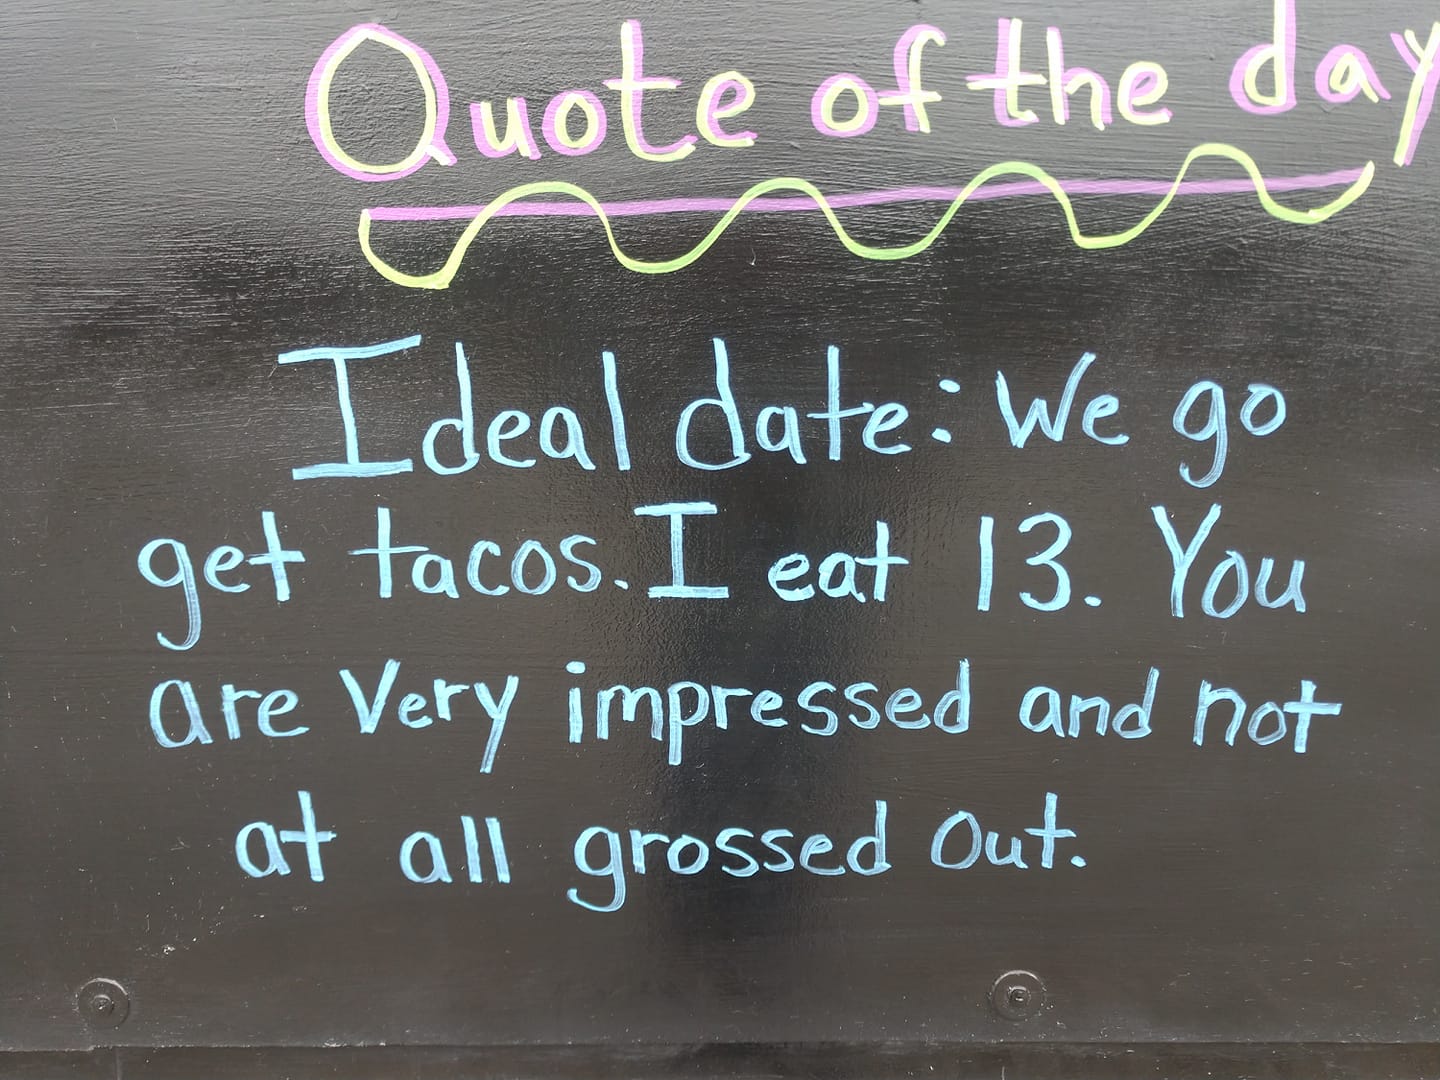 Quote of the day
Ideal date: We go
get tacos. I eat 13. You
are very impressed and not
at all grossed out.